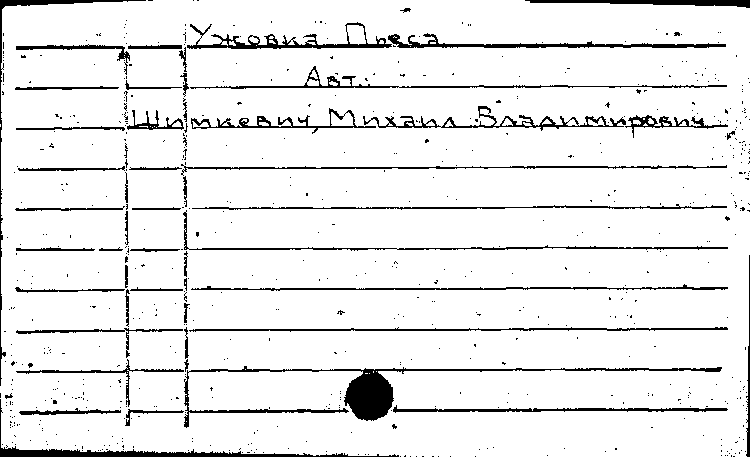 Ужовка Пьеса
Авт.:
Шимкевич, Михаил Владимирович